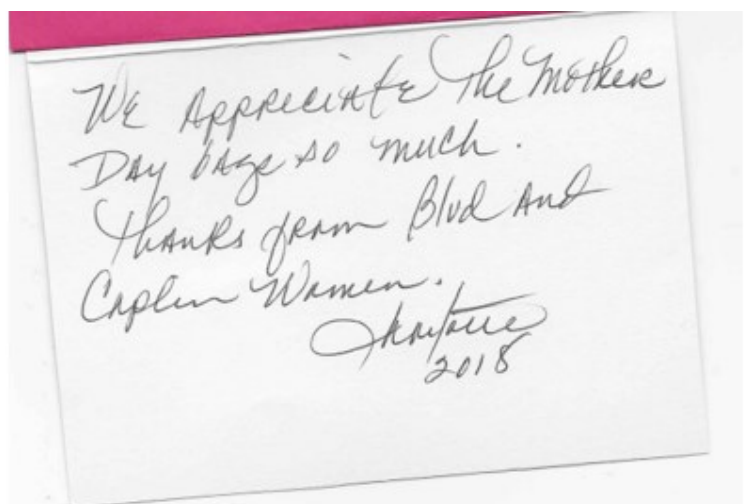 We Appreciate The Mothers
Day bags so much.
Thanks from Blvd And
Caplen Women.
2018